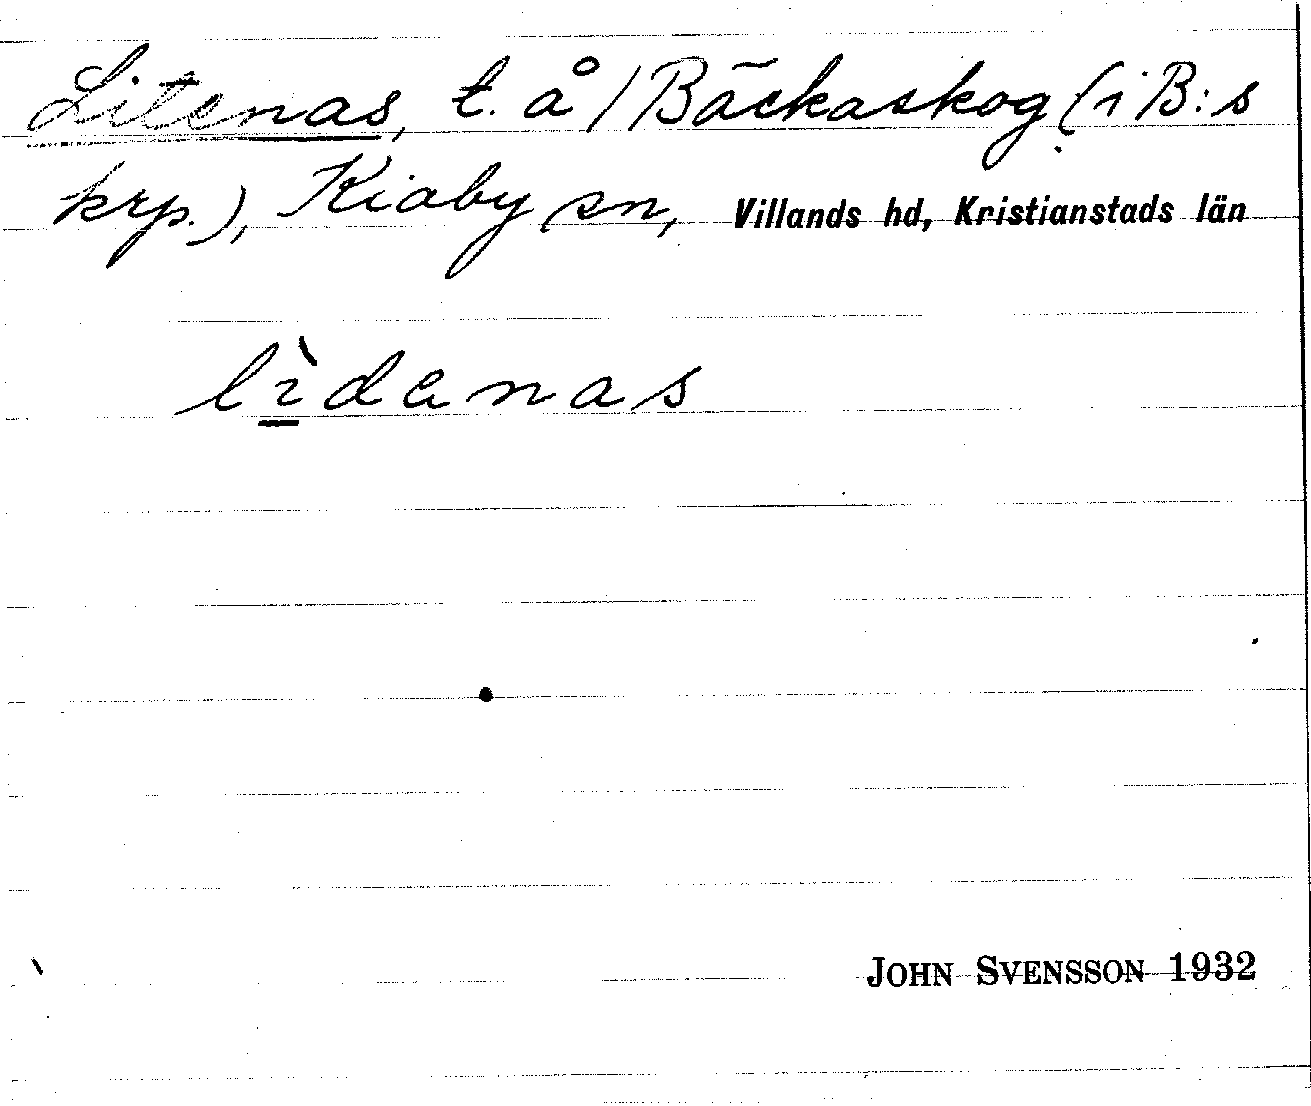 Litenas, t. å / Bäckaskog (i B:s
krp.), Kiaby sn, Villands hd, Kristianstads län
lìdanas
JOHN SVENSSON 1932